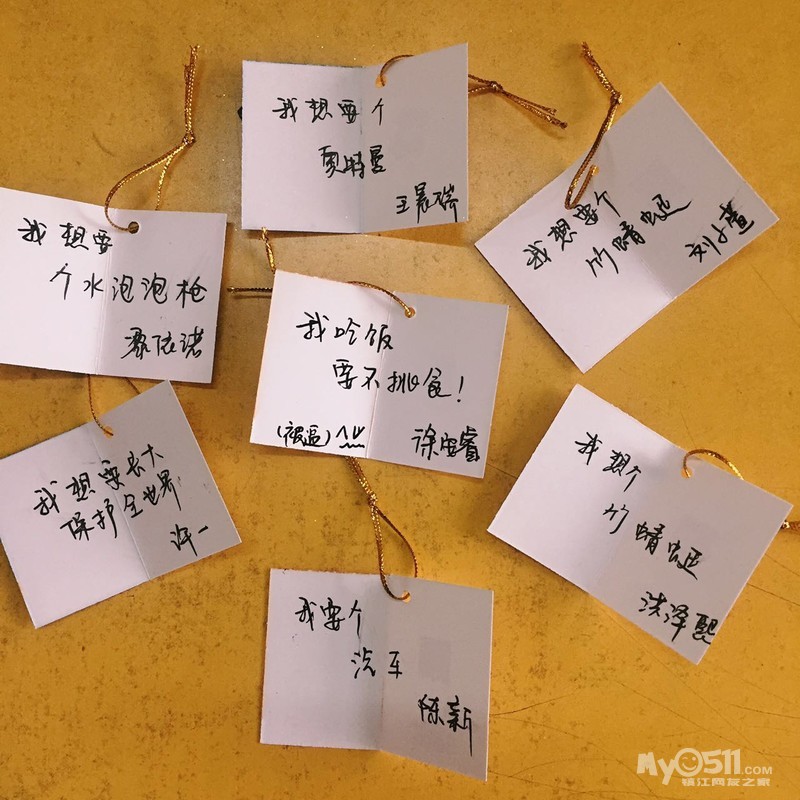 我想要个
奥特曼
王晨瑞
我想要个
竹蜻蜓
刘
我想要
个水泡泡枪
我吃饭
要不挑食!
(被逼)
徐安睿
我想要长大
保护全世界
许一
我想个
竹蜻蜓
洪泽熙
我要个
汽车
陈新
My0511.COM
镇江网友之家